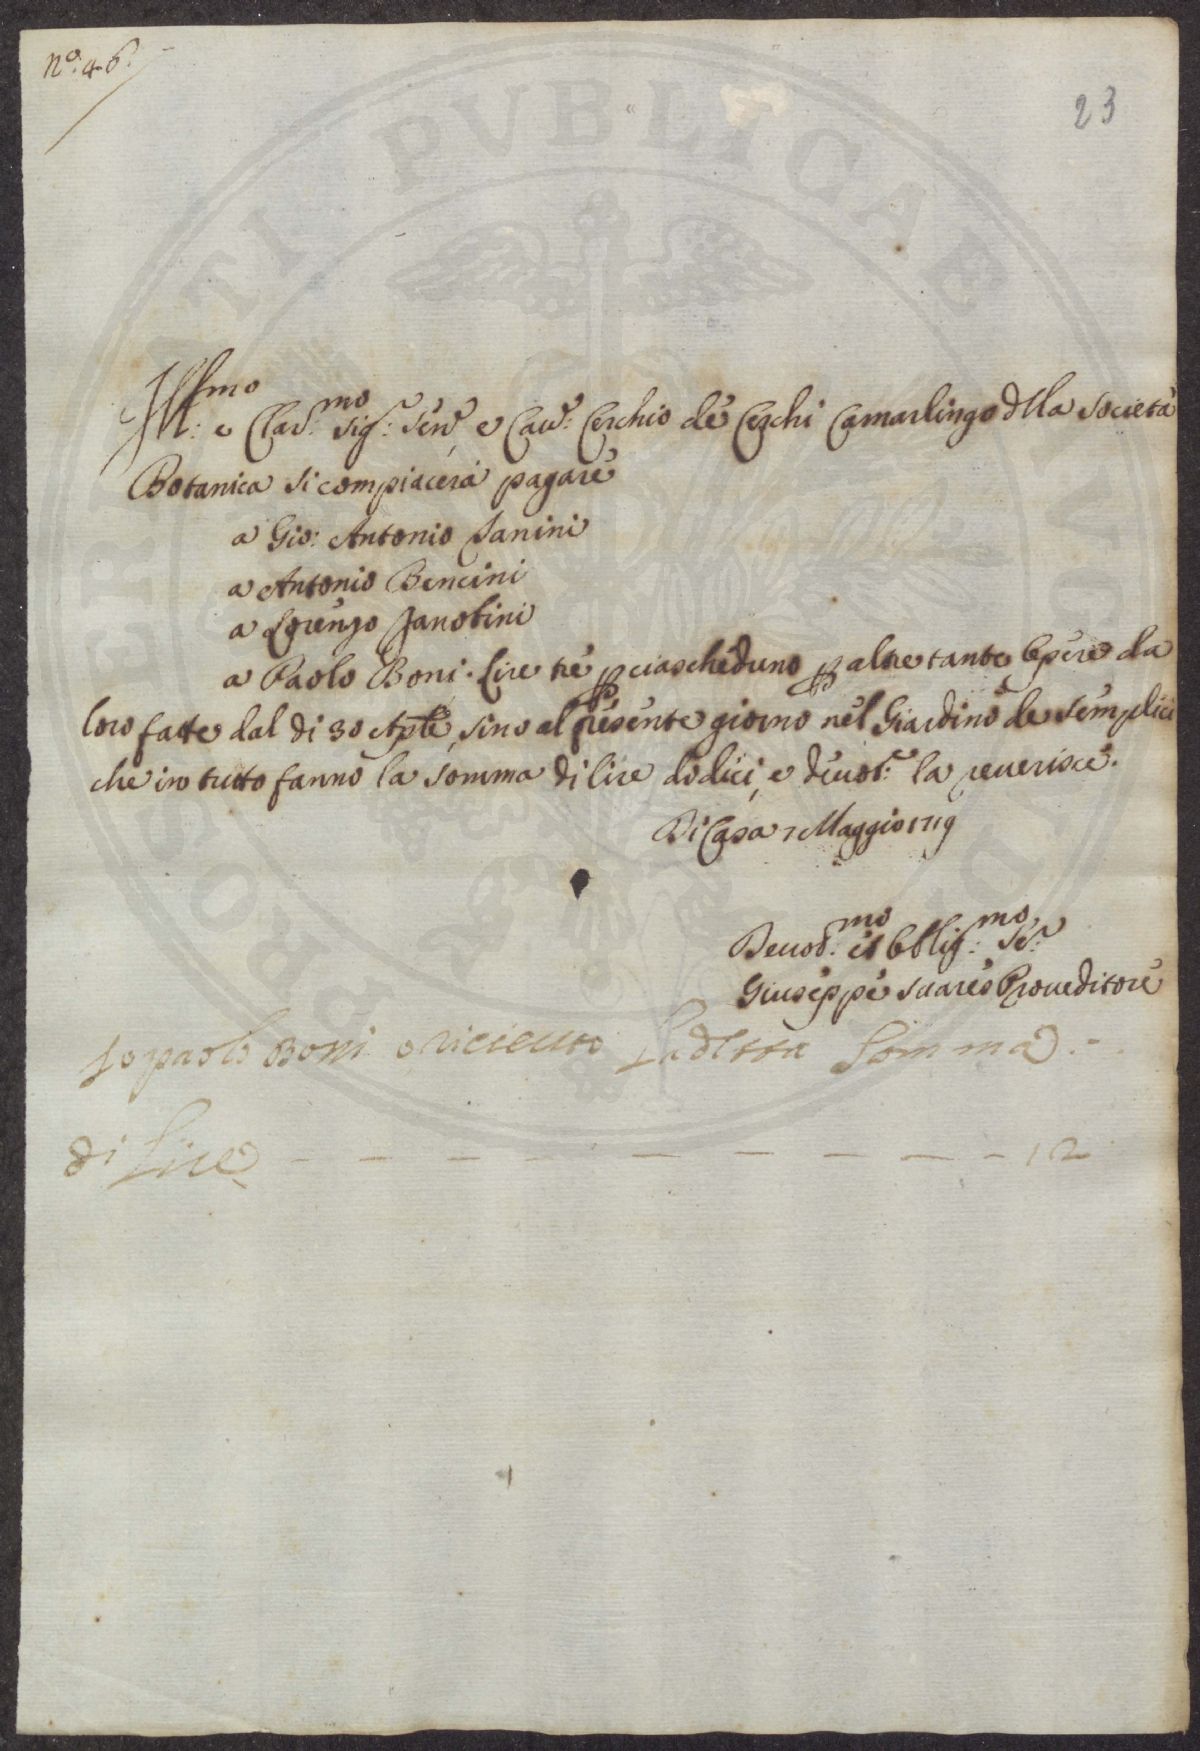 N.o 46.
23
Ill:mo e Clar:mo Sig:r Sen:r e Cav:r Cerchio de Cerchi Camarlingo dlla Società
Botanica si compiacerà pagare
a Gio: Antonio Sanini
a Antonio Bencini
a Lorenzo Janobini
a Paolo Boni. Lire tre p ciascheduno p altretante Opere da
loro fatte dal di 30 Aple, sino al presente giorno nel Giardino de semplici
che in tutto fanno la somma di lire dodici, e devot:e la reverisce.
Di Casa 7 Maggio 1719
Devot:mo et Obblig:mo Se:r
Giuseppe Suares Proveditore
Io paolo Boni o riceuto La detta Somma.-.
di Lire - - - - - - - - - - 12
PVBLICAE